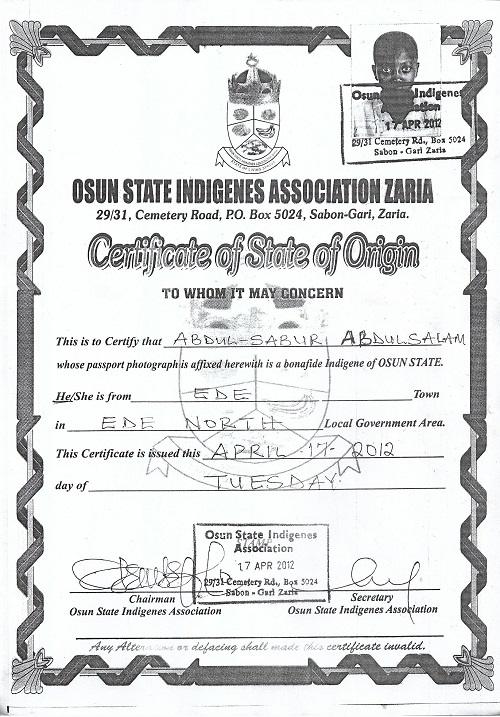 Osun State Indigenes
Association
17 APR 2012
29/31 Cemetery Rd., Box 5024
Sabon - Gari Zaria
OSUN STATE INDIGENES ASSOCIATION ZARIA
29/31, Cemetery Road, P.O. Box 5024, Sabon-Gari, Zaria.
Certificate of State of Origin
TO WHOM IT MAY CONCERN
This is to Certify that ABDUL-SABUR ABDULSALAM
whose passport photograph is affixed herewith is a bonafide Indigene of OSUN STATE.
He/She is from EDE Town
in EDE NORTH Local Government Area.
This Certificate is issued this APRIL -17- 2012
day of TUESDAY
Osun State Indigenes
Association
17 APR 2012
29/31 Cemetery Rd., Box 5024
Sabon - Gari Zaria
Chairman Secretary
Osun State Indigenes Association Osun State Indigenes Association
Any Alteration or defacing shall made this certificate invalid.